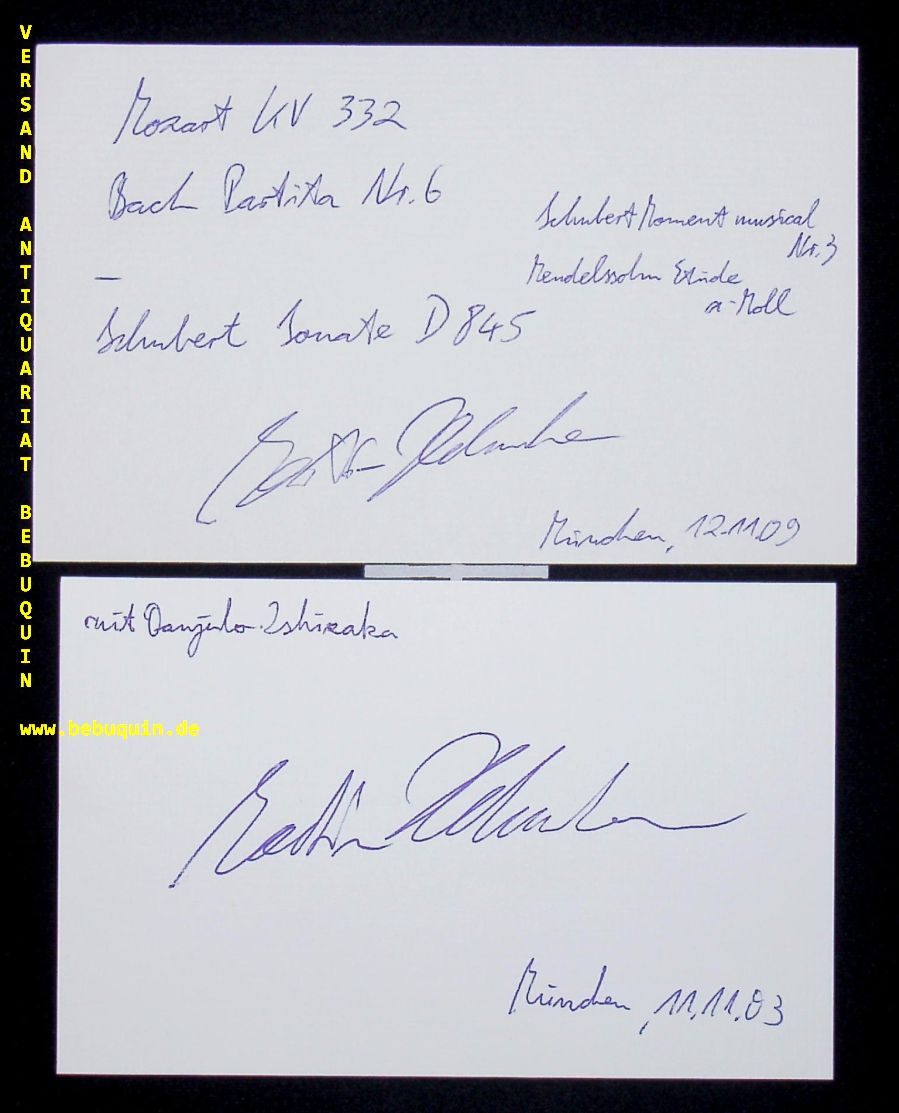 VERSAND ANTIQUARIAT BEBUQUIN
www.bebuquin.de
Mozart KV 332
Bach Partita Nr. 6
—
Schubert Sonate D 845
Schubert Moment musical
Nr. 3
Mendelssohn Etüde
a-Moll
Martin Helmchen
München, 12.11.09
mit Danjulo Ishizaka
Martin Helmchen
München, 11.11.03